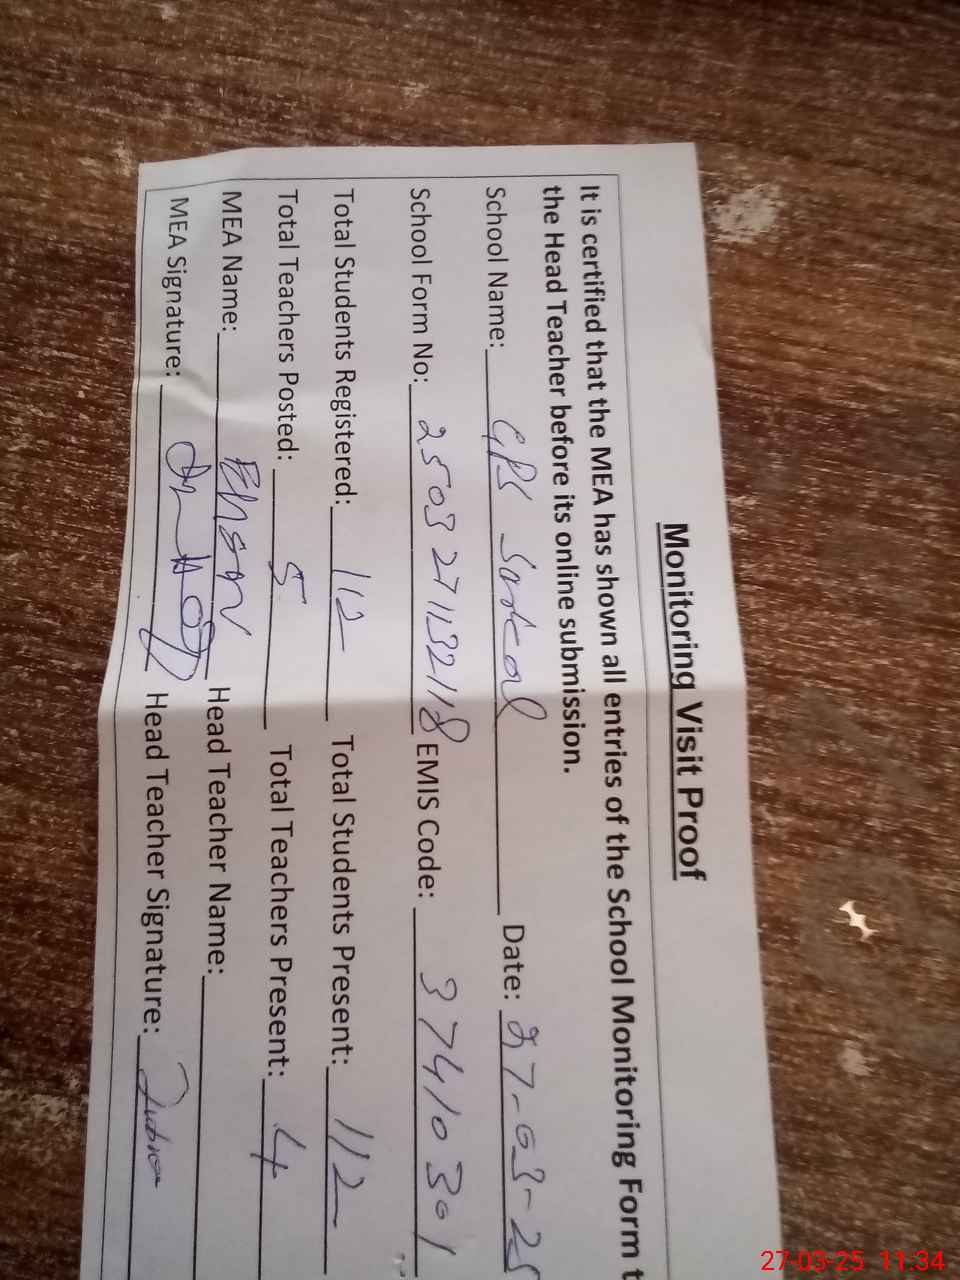 Monitoring Visit Proof
It is certified that the MEA has shown all entries of the School Monitoring Form t
the Head Teacher before its online submission.
School Name: GPS Date: 27-03-25
School Form No: 2503271132118 EMIS Code: 37410301
Total Students Registered: 112 Total Students Present: 112
Total Teachers Posted: 5 Total Teachers Present: 4
MEA Name: Head Teacher Name:
MEA Signature: Head Teacher Signature:
27-03-25 11:34